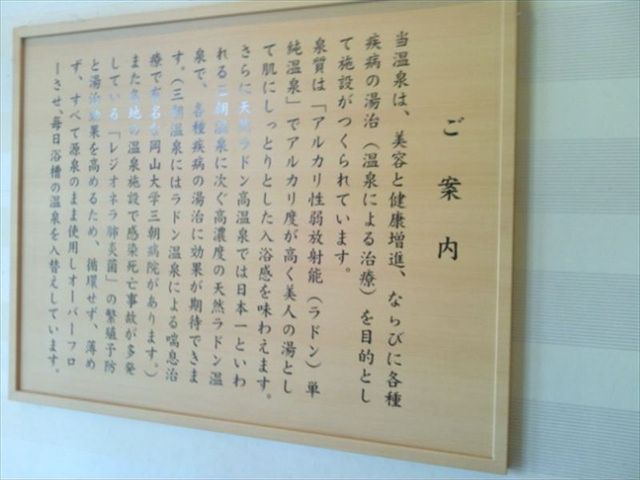 ご案内
当温泉は、美容と健康増進、ならびに各種
疾病の湯治（温泉による治療）を目的とし
て施設がつくられています。
泉質は「アルカリ性弱放射能（ラドン）単
純温泉」でアルカリ度が高く美人の湯とし
て肌にしっとりとした入浴感を味わえます。
さらに天然ラドン高温泉では日本一といわ
れる三朝温泉に次ぐ高濃度の天然ラドン温
泉で、各種疾病の湯治に効果が期待できま
す。（三朝温泉にはラドン温泉による喘息治
療で有名な岡山大学三朝病院があります。）
また各地の温泉施設で感染死亡事故が多発
している「レジオネラ肺炎菌」の繁殖予防
と湯治効果を高めるため、循環せず、薄め
ず、すべて源泉のまま使用しオーバーフロ
ーさせ、毎日浴槽の温泉を入替えしています。